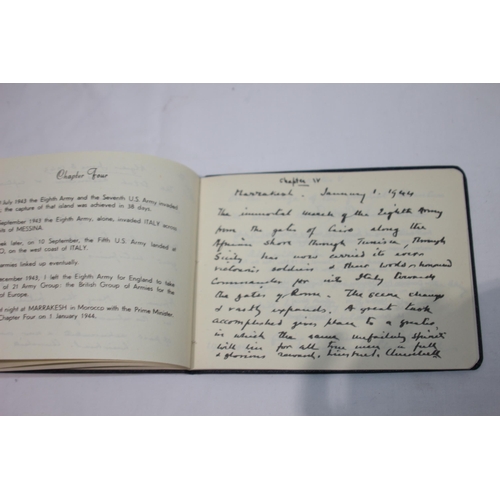 Chapter Four
July 1943 the Eighth Army and the Seventh U.S. Army invaded
the capture of that island was achieved in 38 days.
September 1943 the Eighth Army, alone, invaded ITALY across
its of MESSINA.
eek later, on 10 September, the Fifth U.S. Army landed at
O, on the west coast of ITALY.
rmies linked up eventually.
ecember 1943, I left the Eighth Army for England to take
of 21 Army Group: the British Group of Armies for the
of Europe.
d night at MARRAKESH in Morocco with the Prime Minister,
Chapter Four on 1 January 1944.
Chapter IV
Marrakesh. January 1. 1944
The immortal march of the Eighth Army
from the gates of Cairo along the
African shore through Tunisia, through
Sicily has now carried its ever
victorious soldiers & their world-renowned
Commander far into Italy towards
the gates of Rome. The scene changes
& vastly expands. A great task
accomplished gives place to a greater,
in which the same unfailing spirit
will win for all true men a full
& glorious reward. Winston S. Churchill